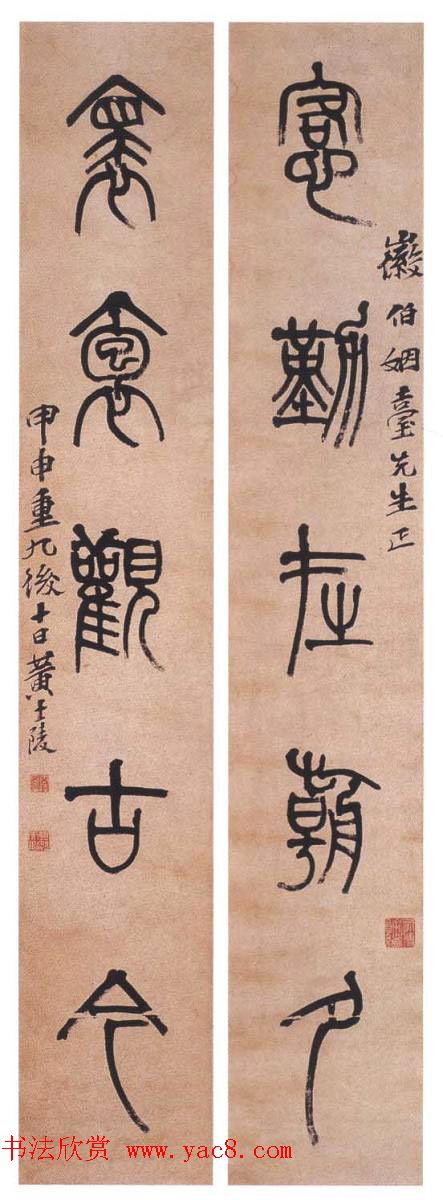 愙勤在朝夕
徽伯姻臺先生正
褱袌觀古今
甲申重九後十日黃士陵
书法欣赏 www.yac8.com